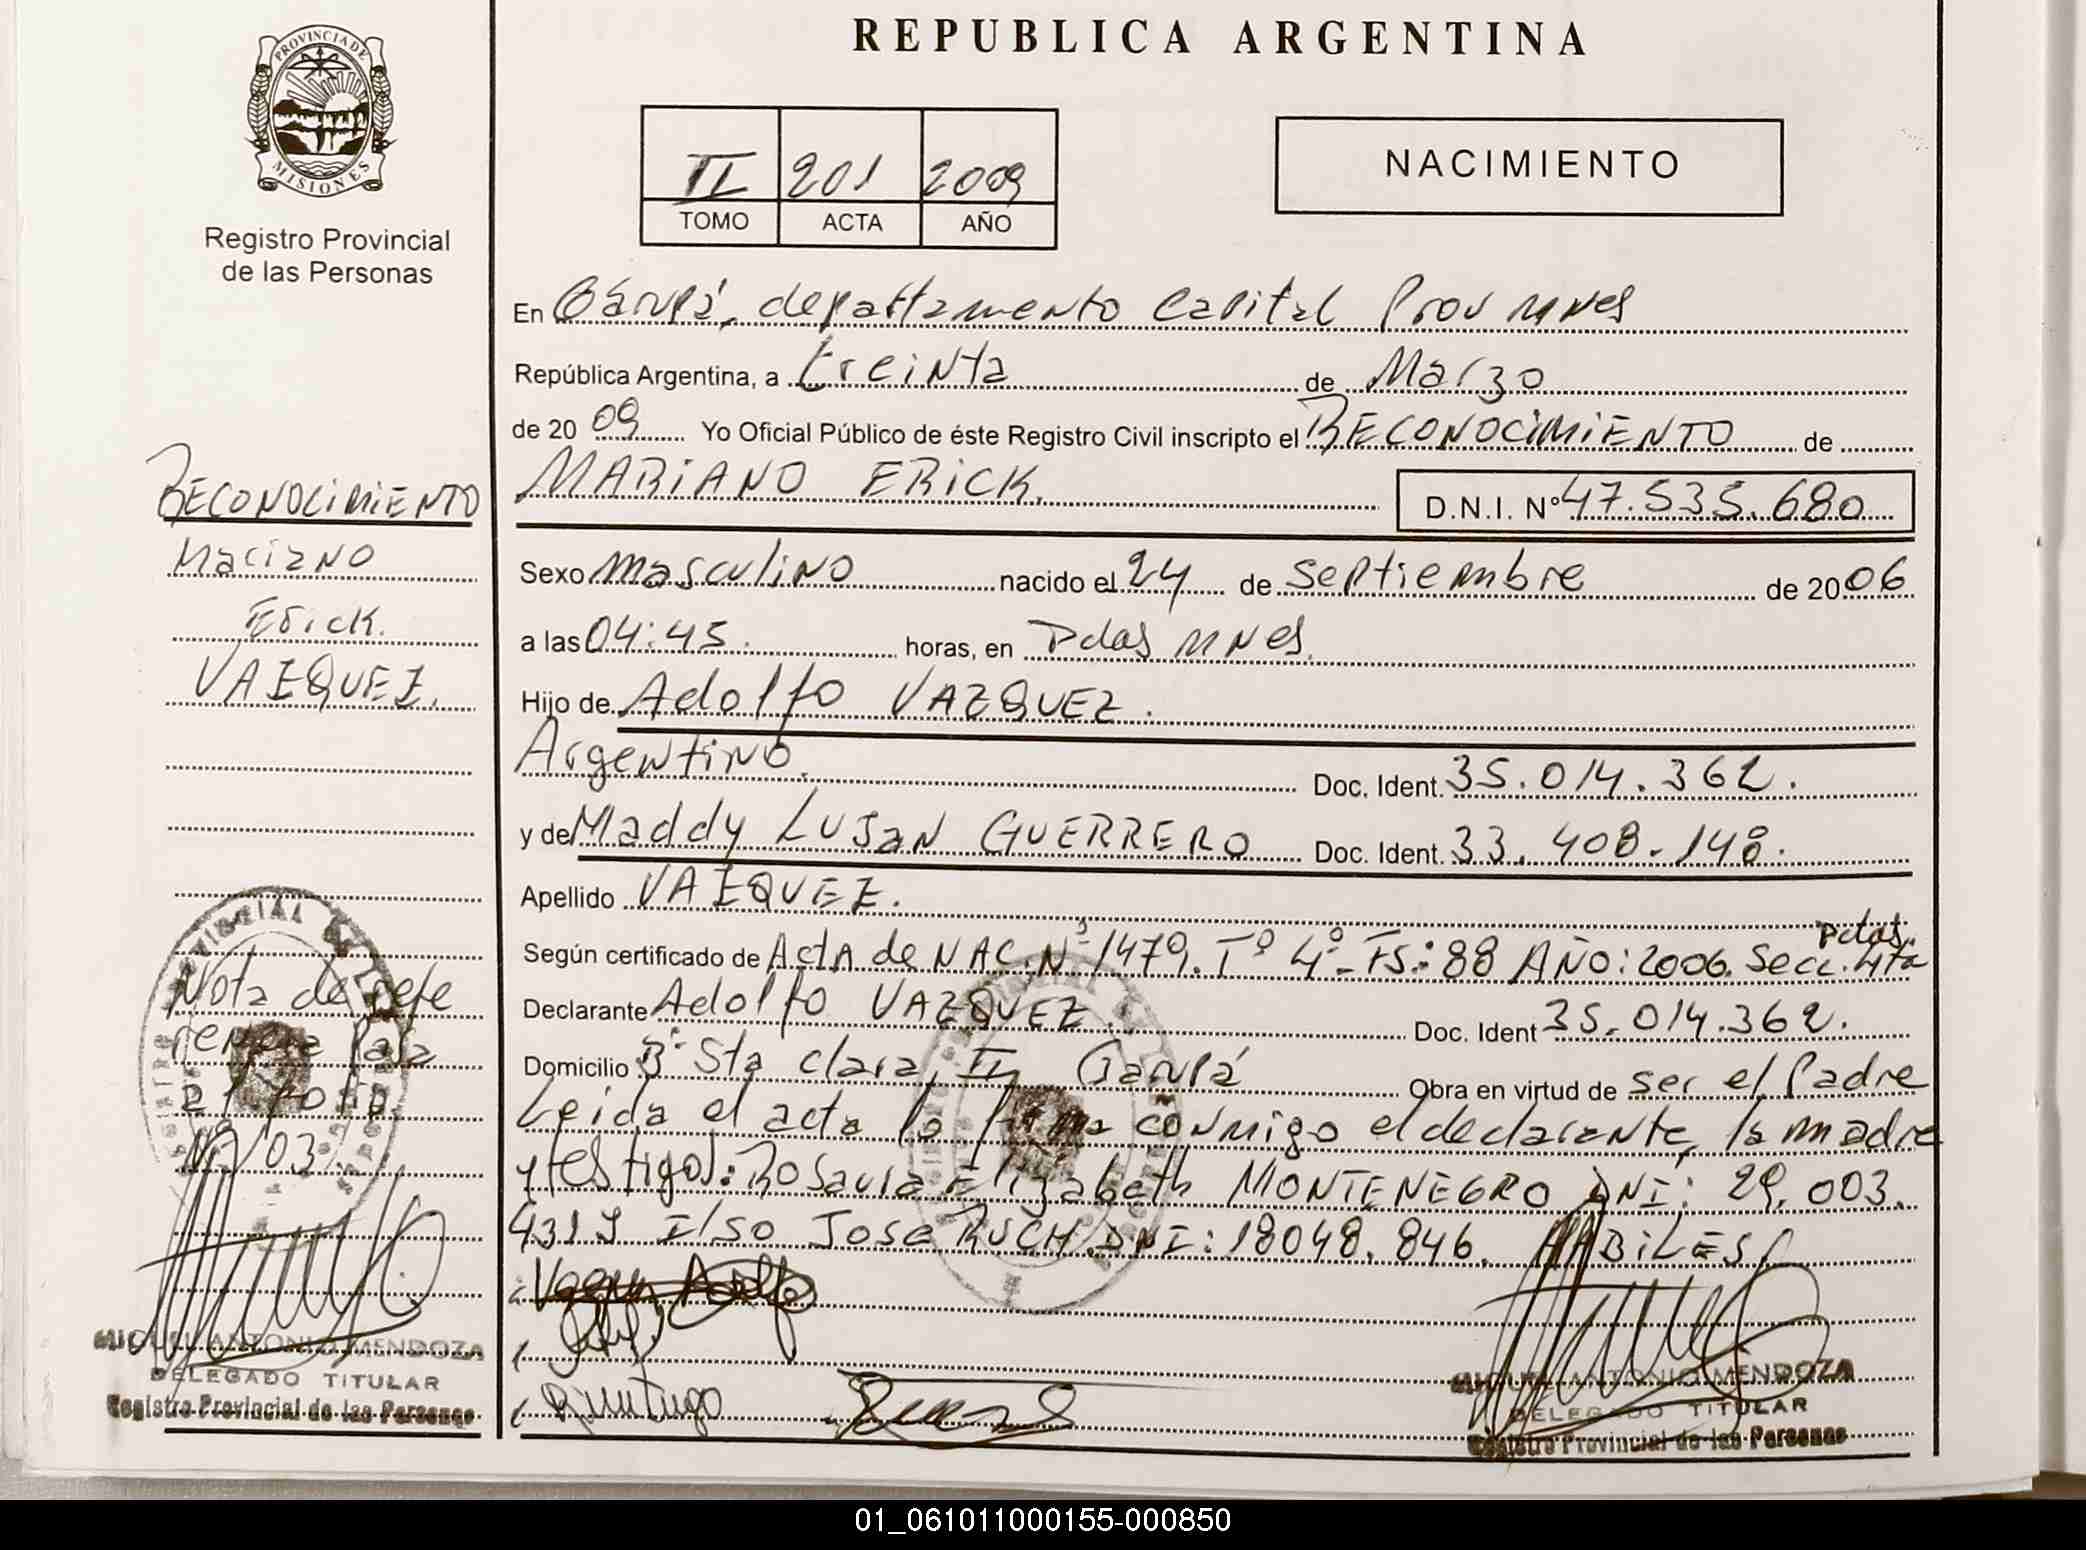 REPUBLICA ARGENTINA
PROVINCIA DE
MISIONES
Registro Provincial
de las Personas
II 201 2009
TOMO ACTA AÑO
NACIMIENTO
En Garupá, departamento Capital Prov Mnes
República Argentina, a treinta de Marzo
de 2009 Yo Oficial Público de éste Registro Civil inscripto el RECONOCIMIENTO de
MARIANO ERICK. D.N.I. Nº 47.535.680
Sexo masculino nacido el 24 de septiembre de 2006
a las 04:45. horas, en Pdas Mnes.
Hijo de Adolfo VAZQUEZ.
Argentino. Doc. Ident. 35.014.362.
y de Maddy LUJAN GUERRERO Doc. Ident. 33.408.148.
Apellido VAZQUEZ.
Según certificado de Acta de NAC. Nº 1479. Tº 4º- Fs.: 88 AÑO: 2006. Secc. 4ta Pdas.
Declarante Adolfo VAZQUEZ. Doc. Ident 35.014.362.
Domicilio Bº Sta Clara II Garupá Obra en virtud de ser el Padre
Leida el acta la firma conmigo el declarante, la madre
y testigos: Rosaura Elizabeth MONTENEGRO DNI: 29.003.
431 y Ilso Jose RUCH DNI: 18048.846. HABILES
RECONOCIMIENTO
Mariano
Erick.
VAZQUEZ.
Nota de refe
rencia Pasa
al folio
Nº 103
MIGUEL ANTONIO MENDOZA
DELEGADO TITULAR
Registro Provincial de las Personas
MIGUEL ANTONIO MENDOZA
DELEGADO TITULAR
Registro Provincial de las Personas
01_061011000155-000850